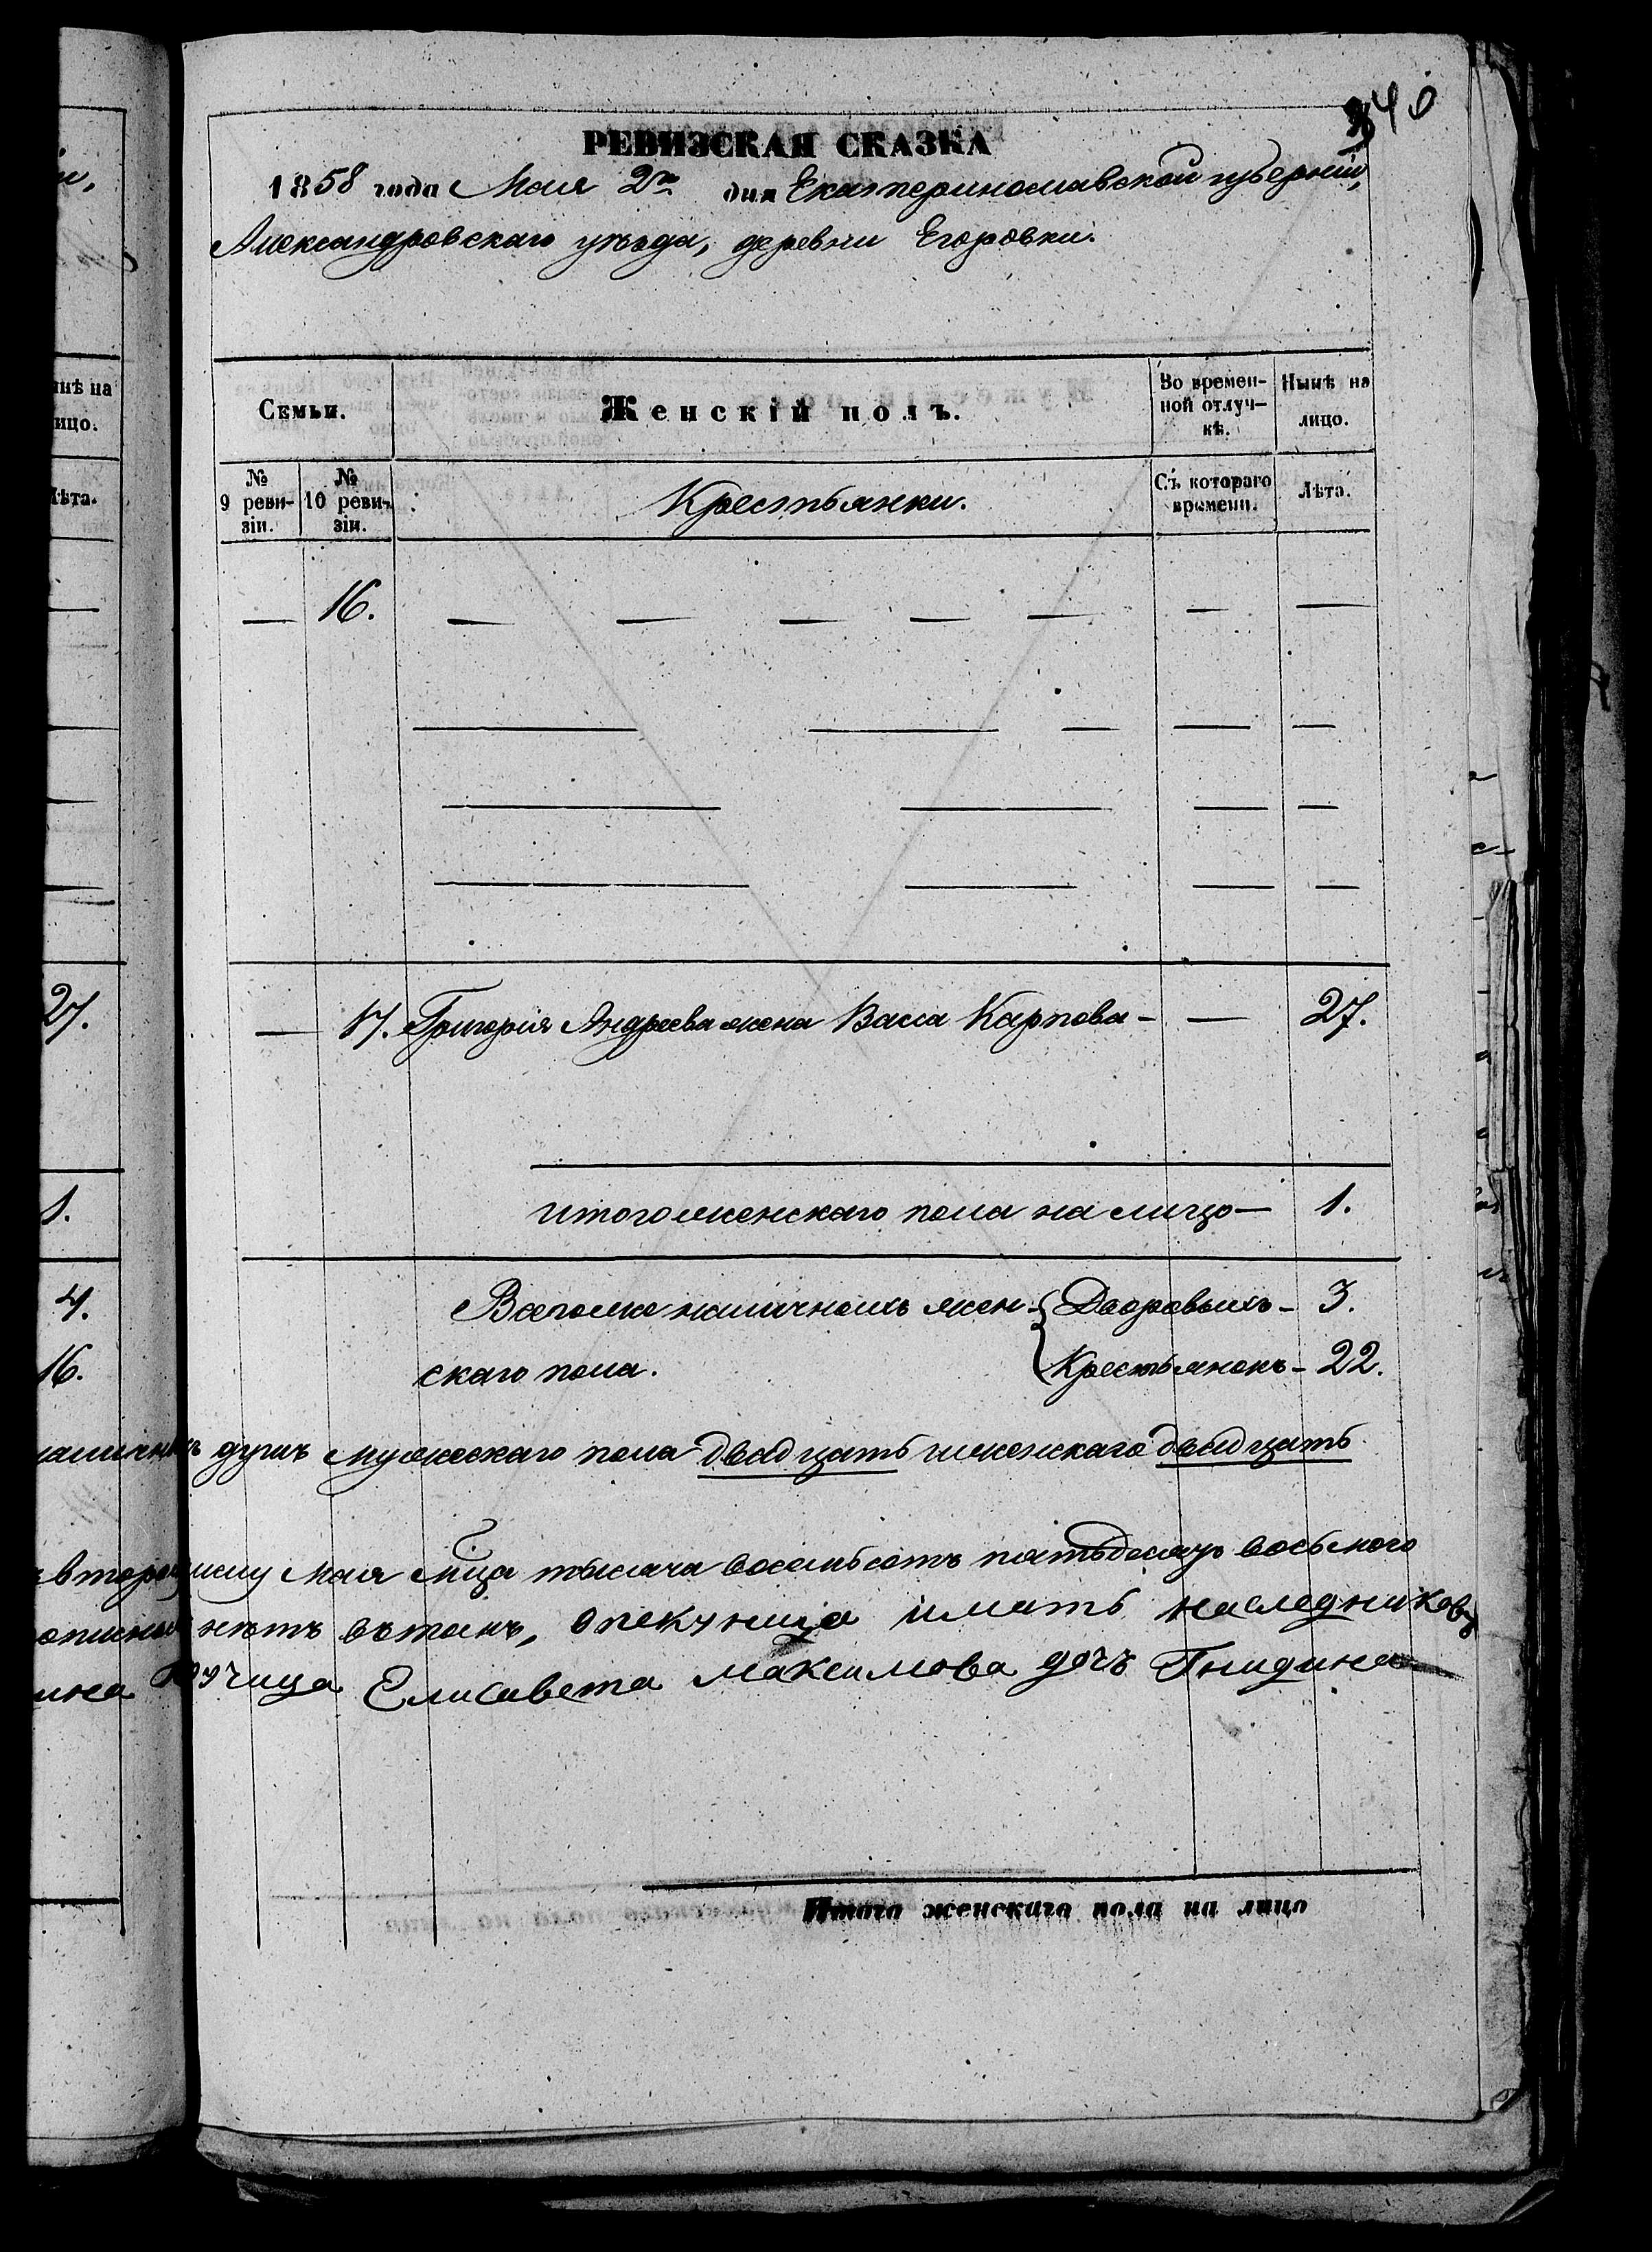 340
РЕВИЗСКАЯ СКАЗКА
1858 года Мая 2го дня Екатеринославской губерніи,
Александровскаго уѣзда, деревни Егоровки.
Семьи.
Женскій полъ.
Во времен-
ной отлуч-
кѣ.
Нынѣ на
лицо.
№
9 реви-
зіи.
№
10 реви-
зіи.
Крестьянки.
Съ котораго
времени.
Лѣта.
— 16. — — — — — — —
— 17. Григорія Андреева жена Васса Карпова — — 27.
Итого женскаго пола на лицо — 1.
Всего же наличныхъ жен- { Дворовыхъ — 3.
скаго пола. Крестьянокъ — 22.
душъ мужескаго пола двадцать и женскаго двадцать
числу Мая мца тысяча восемьсотъ пятьдесятъ восьмого
нѣтъ въ томъ, опекунша и мать наследниковъ
Поручица Елисавета Максимова дочь Гнидина
Итого женскаго пола на лицо
нѣ на
ицо.
ѣта.
27.
1.
4.
16.